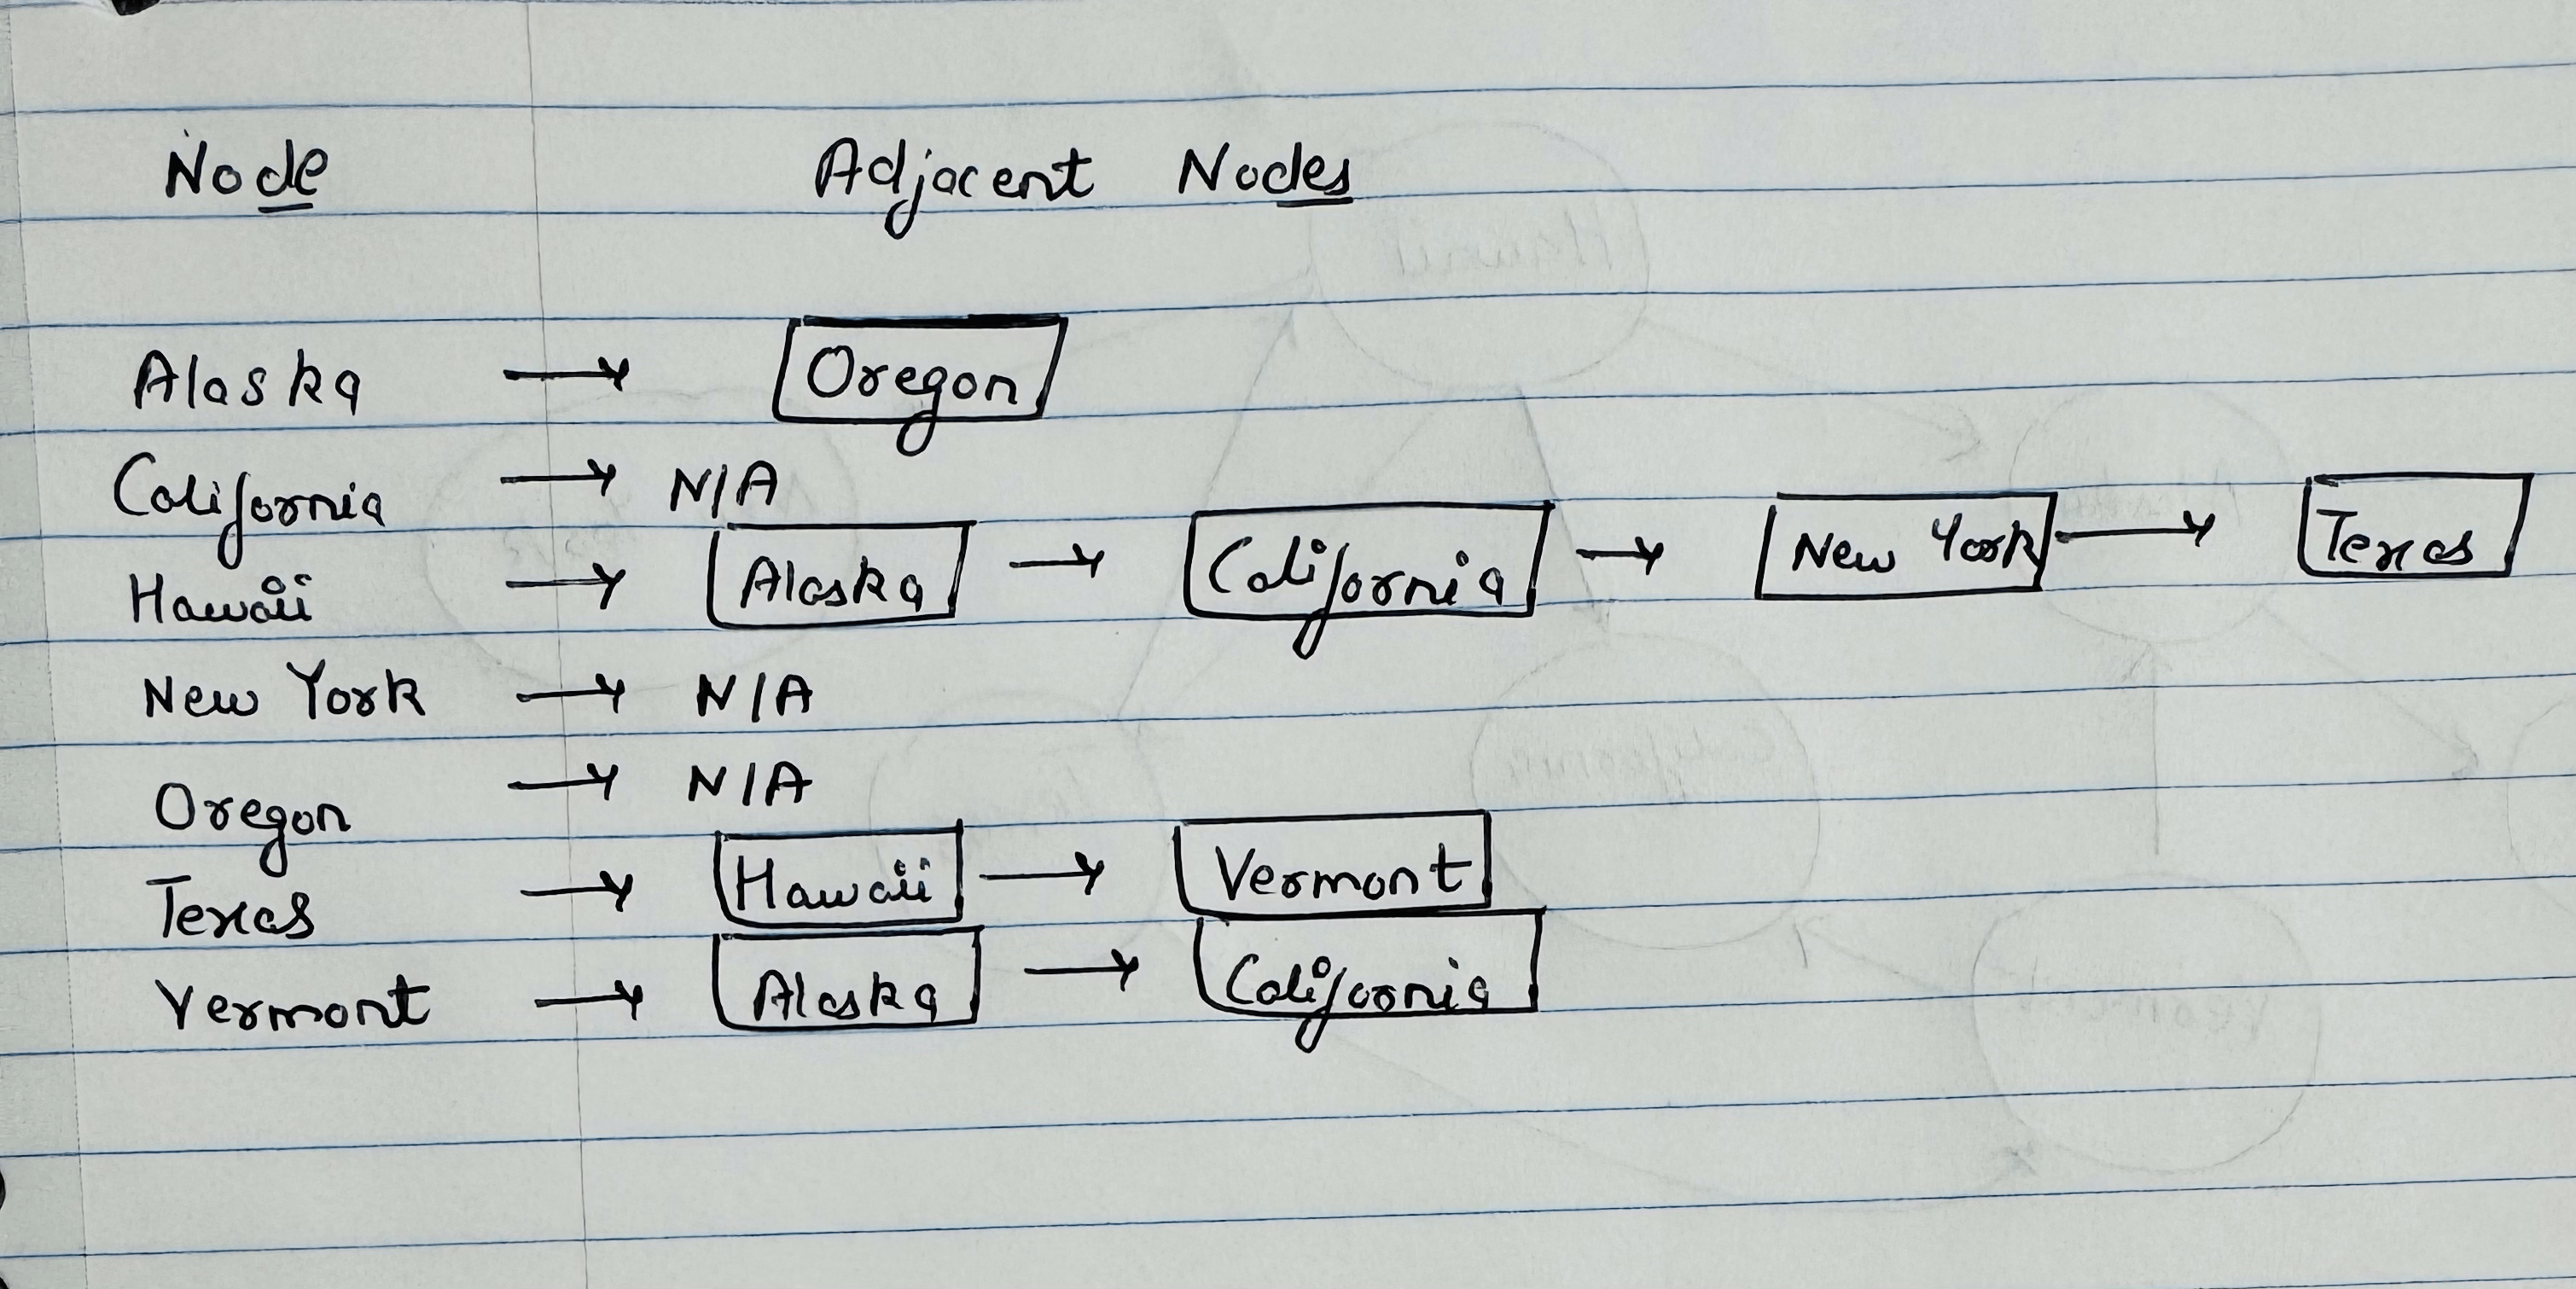 Node Adjacent Nodes
Alaska → Oregon
California → N/A
Hawaii → Alaska → California → New York → Texas
New York → N/A
Oregon → N/A
Texas → Hawaii → Vermont
Vermont → Alaska → California